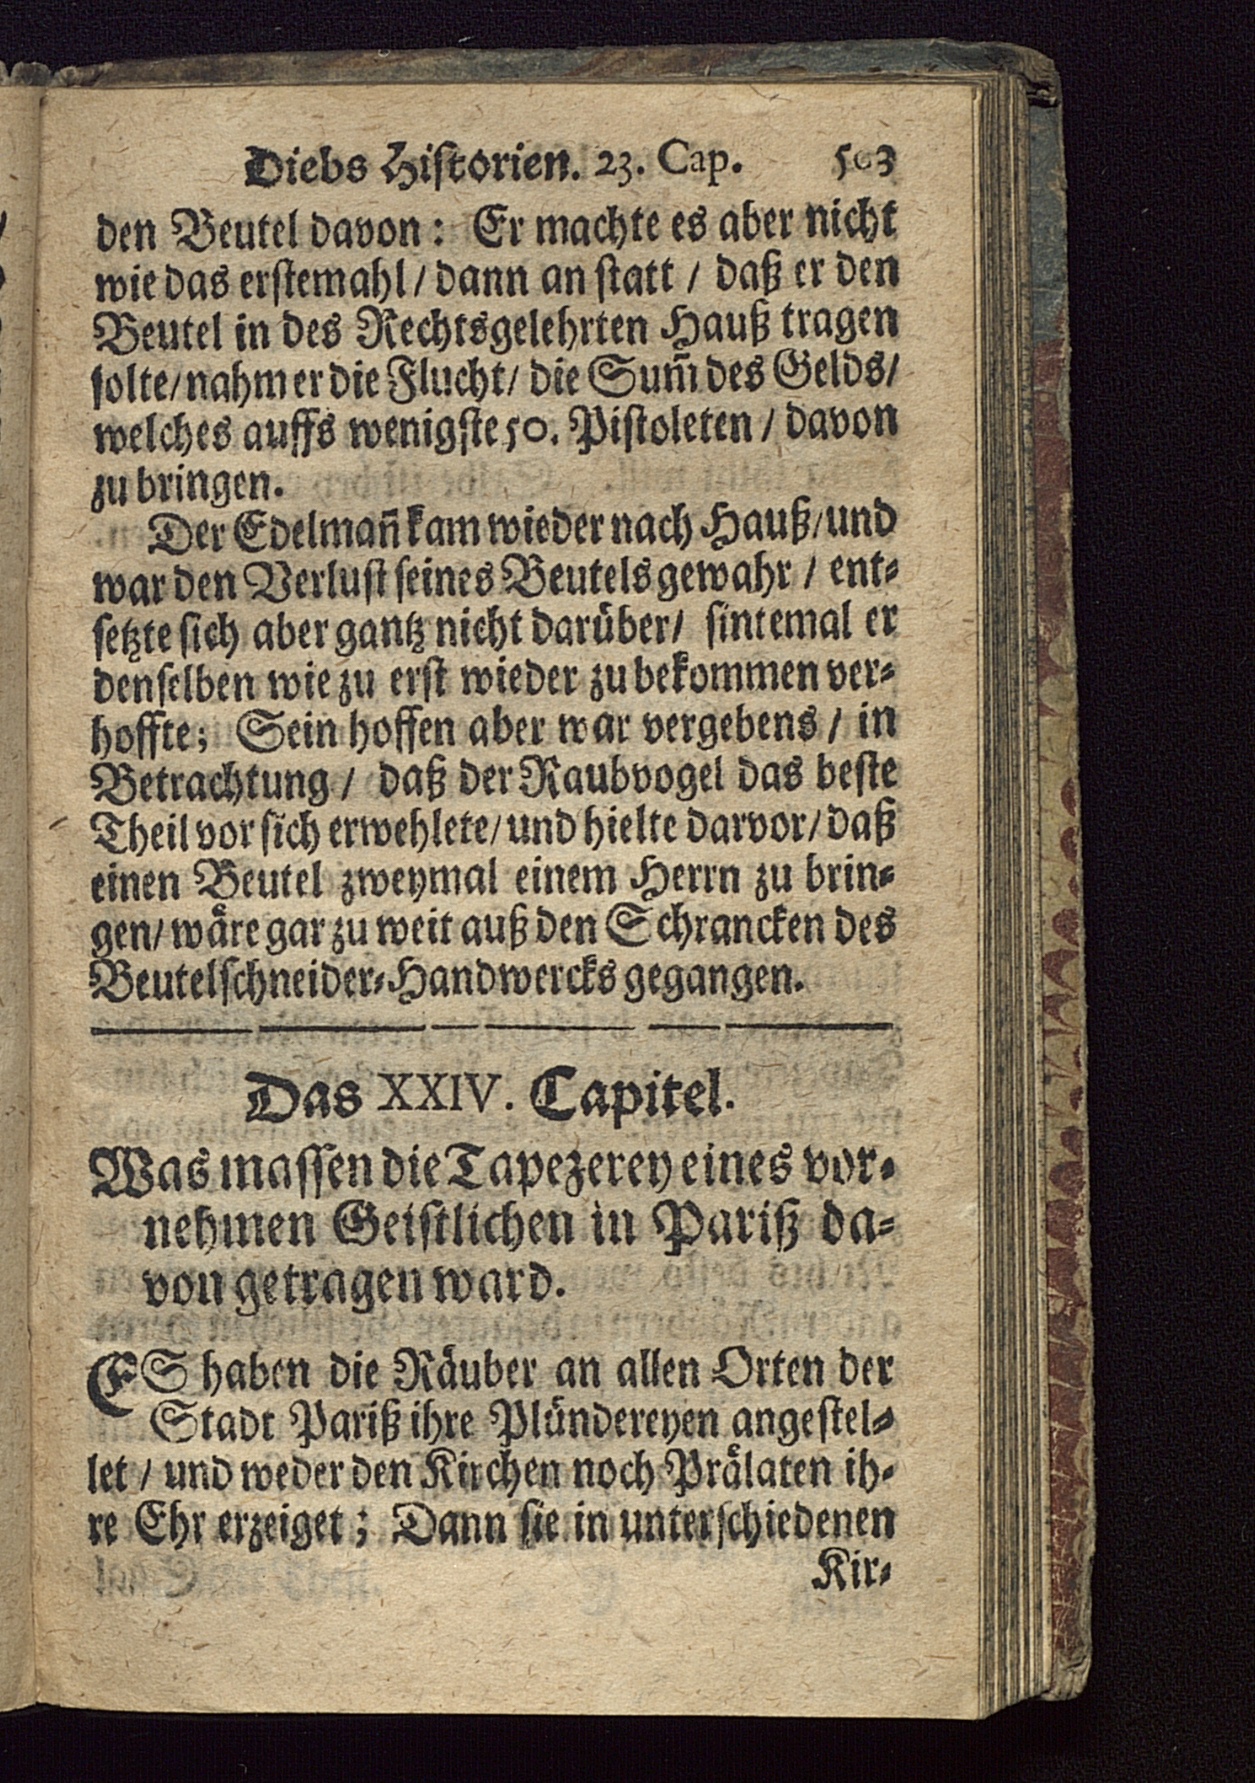 Diebs Historien. 23. Cap. 503
den Beutel davon: Er machte es aber nicht
wie das erstemahl / dann an statt / daß er den
Beutel in des Rechtsgelehrten Hauß tragen
solte / nahm er die Flucht / die Sum̃ des Gelds /
welches auffs wenigste 50. Pistoleten / davon
zu bringen.
Der Edelmañ kam wieder nach Hauß / und
war den Verlust seines Beutels gewahr / ent-
setzte sich aber gantz nicht darüber / sintemal er
denselben wie zu erst wieder zu bekommen ver-
hoffte; Sein hoffen aber war vergebens / in
Betrachtung / daß der Raubvogel das beste
Theil vor sich erwehlete / und hielte darvor / daß
einen Beutel zweymal einem Herrn zu brin-
gen / wäre gar zu weit auß den Schrancken des
Beutelschneider-Handwercks gegangen.
Das XXIV. Capitel.
Was massen die Tapezerey eines vor-
nehmen Geistlichen in Pariß da-
von getragen ward.
ES haben die Räuber an allen Orten der
Stadt Pariß ihre Plündereyen angestel-
let / und weder den Kirchen noch Prälaten ih-
re Ehr erzeiget; Dann sie in unterschiedenen
Kir-